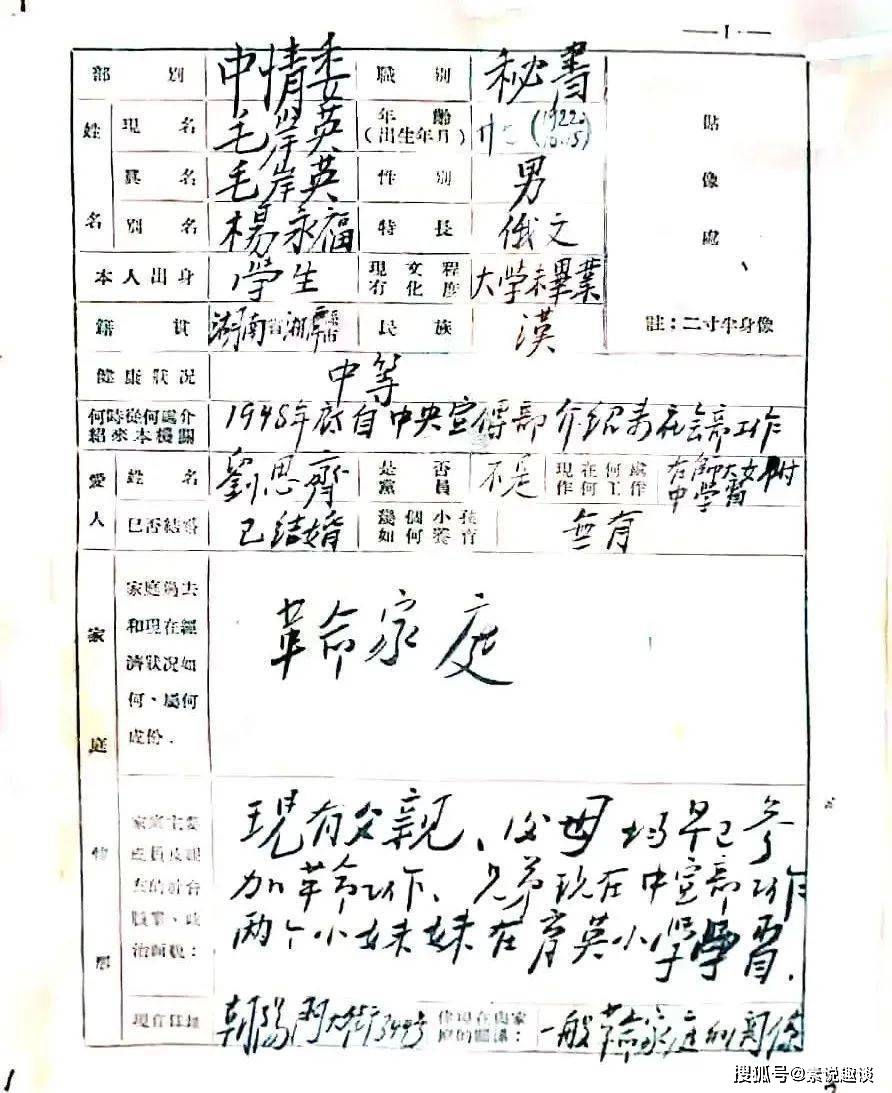 — 1 · —
部別 中情委 職別 秘書
姓名 現名 毛岸英 年齡（出生年月） 廿七（1922.10.15）
真名 毛岸英 性別 男
別名 楊永福 特長 俄文
貼像處
本人出身 學生 現有文化程度 大学未畢業
籍貫 湖南省湘潭縣市 民族 漢
註：二寸半身像
健康狀況 中等
何時從何處介紹來本機關 1948年底自中央宣傳部介紹来社会部工作
愛人 姓名 劉思齊 是否黨員 不是 現在何處作何工作 在師大女附中學習
已否結婚 已結婚 幾個小孩如何養育 無有
家庭情形
家庭過去和現在經濟狀況如何、屬何成份．
革命家庭
家庭主要成員及親友的社會職業、政治面貌：
現有父親、父母均早已參
加革命工作、兄弟現在中宣部工作
两个小妹妹在育英小學學習．
現在住址 朝陽門大街349号 你現在與家庭的關係： 一般革命家庭的関係
搜狐号@素说趣谈